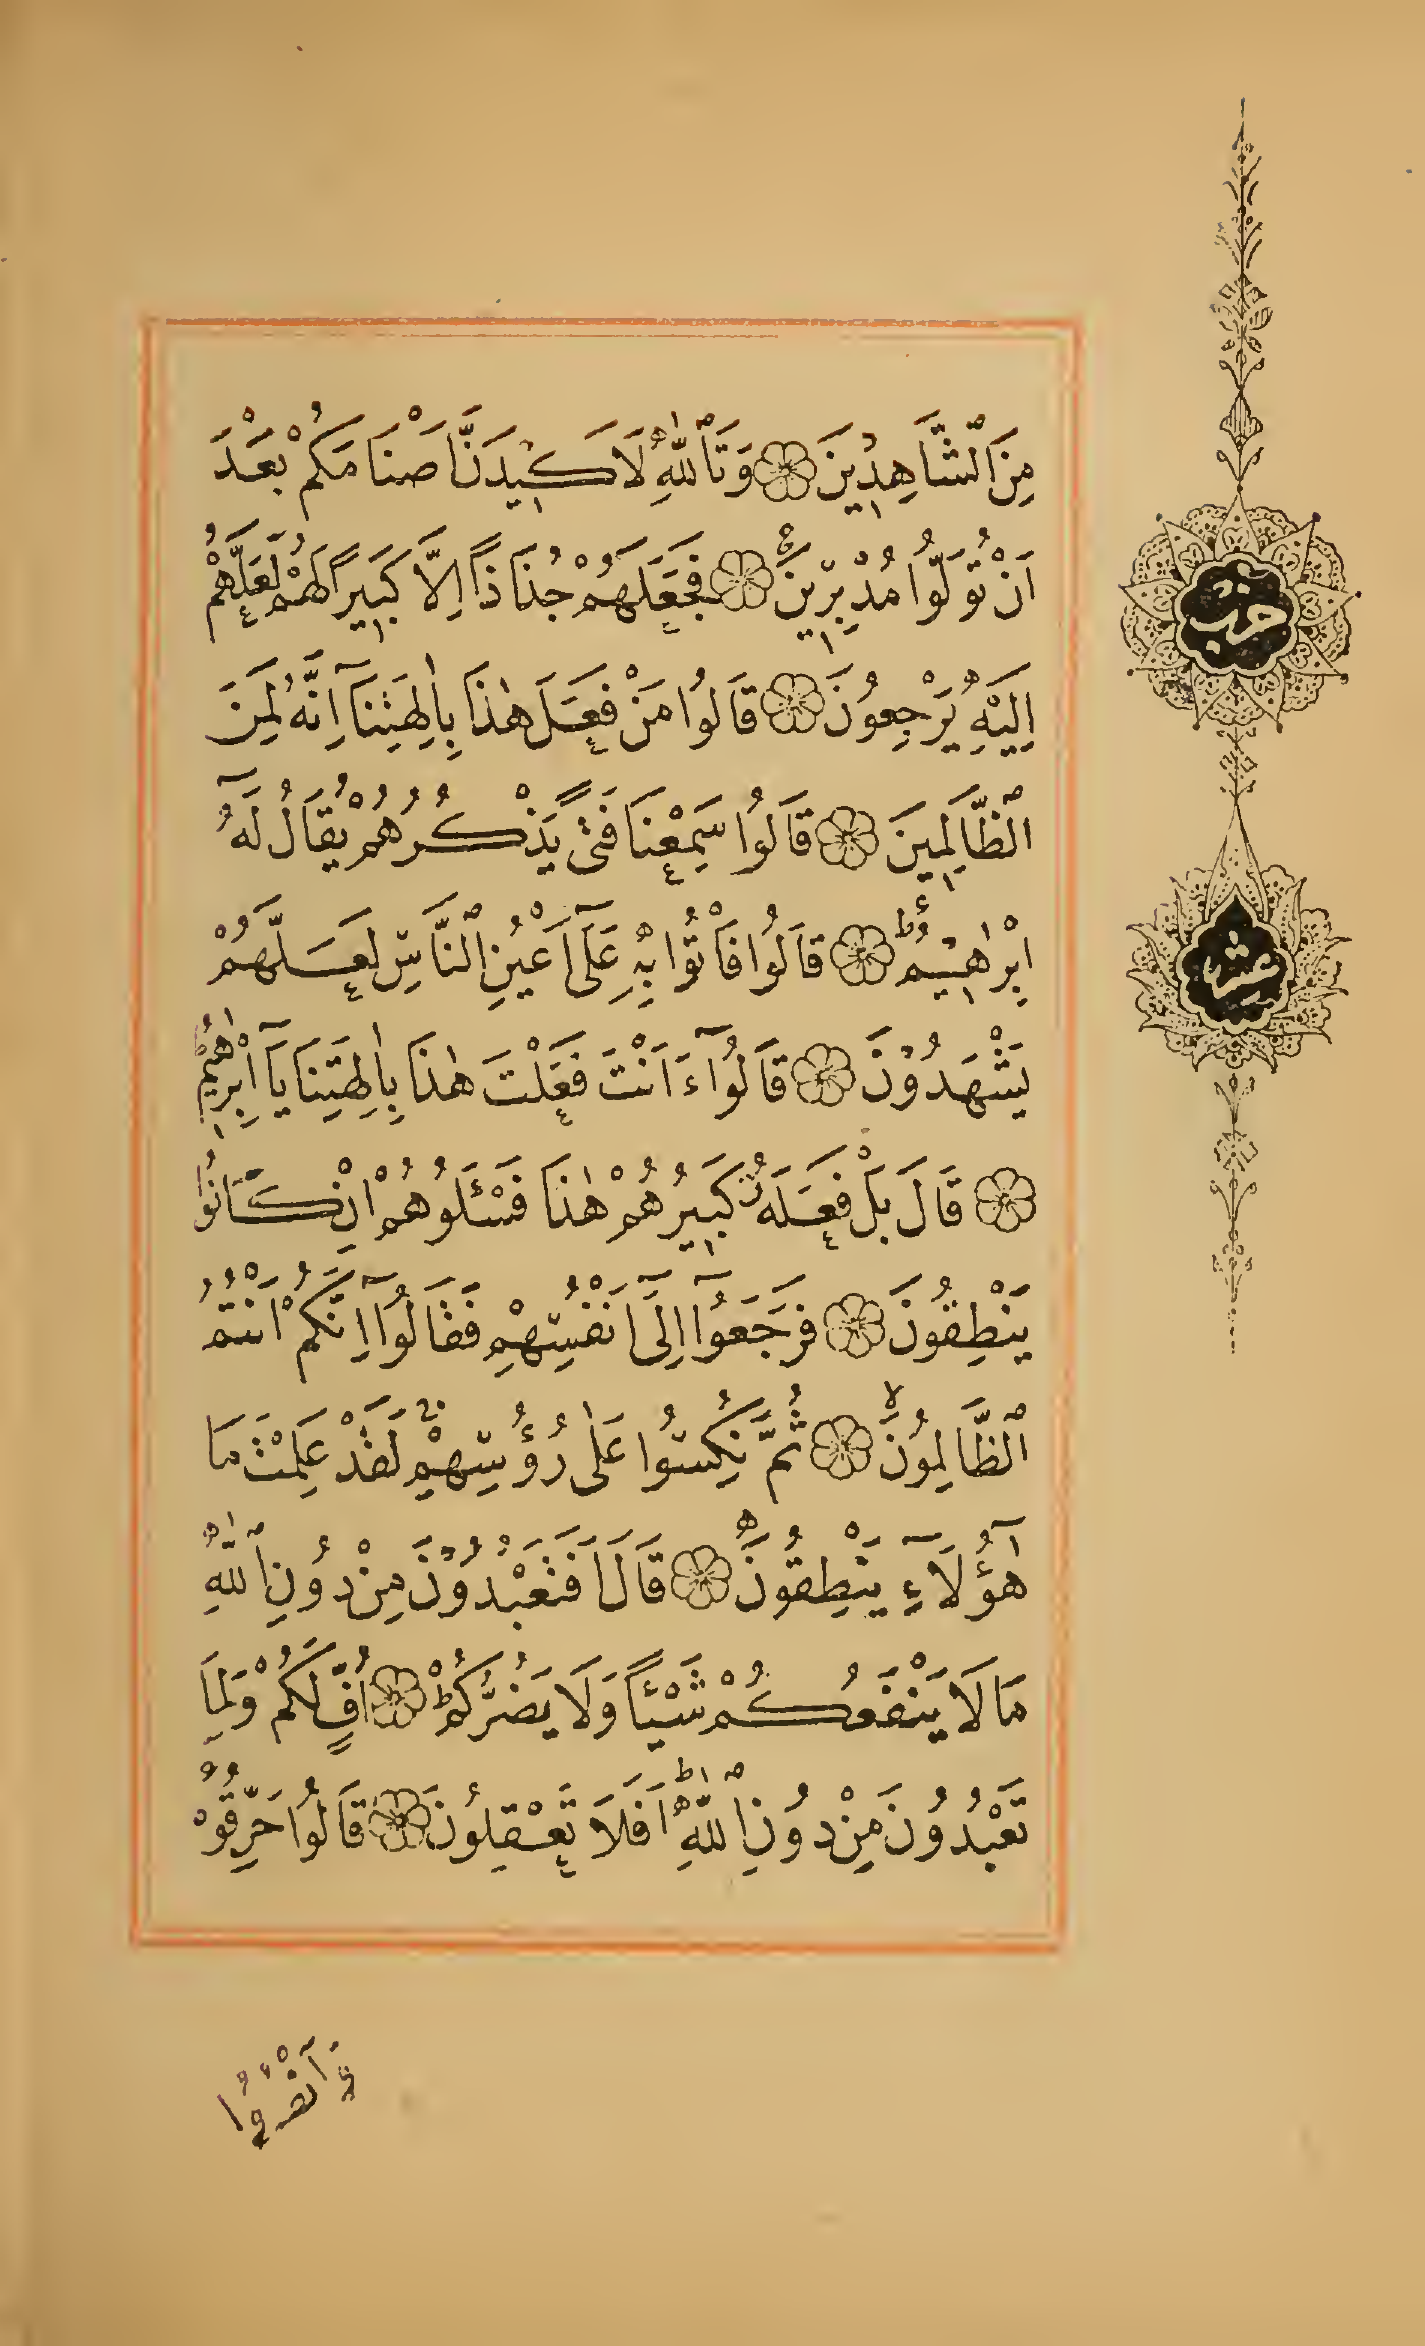 مِنَ ٱلشَّاهِدِينَ ۝ وَتَٱللّٰهِ لَاَكِيدَنَّ اَصْنَامَكُمْ بَعْدَ
اَنْ تُوَلُّوا مُدْبِرِينَ ۝ فَجَعَلَهُمْ جُذَاذًا اِلَّا كَبِيرًا لَهُمْ لَعَلَّهُمْ
اِلَيْهِ يَرْجِعُونَ ۝ قَالُوا مَنْ فَعَلَ هٰذَا بِاٰلِهَتِنَآ اِنَّهُ لَمِنَ
ٱلظَّالِمِينَ ۝ قَالُوا سَمِعْنَا فَتًى يَذْكُرُهُمْ يُقَالُ لَهُٓ
اِبْرٰهِيمُ ۝ قَالُوا فَأْتُوا بِهِ عَلٰٓى اَعْيُنِ ٱلنَّاسِ لَعَلَّهُمْ
يَشْهَدُونَ ۝ قَالُوٓا ءَاَنْتَ فَعَلْتَ هٰذَا بِاٰلِهَتِنَا يَآ اِبْرٰهِيمُ
۝ قَالَ بَلْ فَعَلَهُ كَبِيرُهُمْ هٰذَا فَسْـَٔلُوهُمْ اِنْ كَانُوا
يَنْطِقُونَ ۝ فَرَجَعُوٓا اِلٰٓى اَنْفُسِهِمْ فَقَالُوٓا اِنَّكُمْ اَنْتُمُ
ٱلظَّالِمُونَ ۝ ثُمَّ نُكِسُوا عَلٰى رُؤُسِهِمْ لَقَدْ عَلِمْتَ مَا
هٰٓؤُلَٓاءِ يَنْطِقُونَ ۝ قَالَ اَفَتَعْبُدُونَ مِنْ دُونِ ٱللّٰهِ
مَا لَا يَنْفَعُكُمْ شَيْـًٔا وَلَا يَضُرُّكُمْ ۝ اُفٍّ لَكُمْ وَلِمَا
تَعْبُدُونَ مِنْ دُونِ ٱللّٰهِ اَفَلَا تَعْقِلُونَ ۝ قَالُوا حَرِّقُوهُ
وَٱنْصُرُوٓا
حزب
عشر